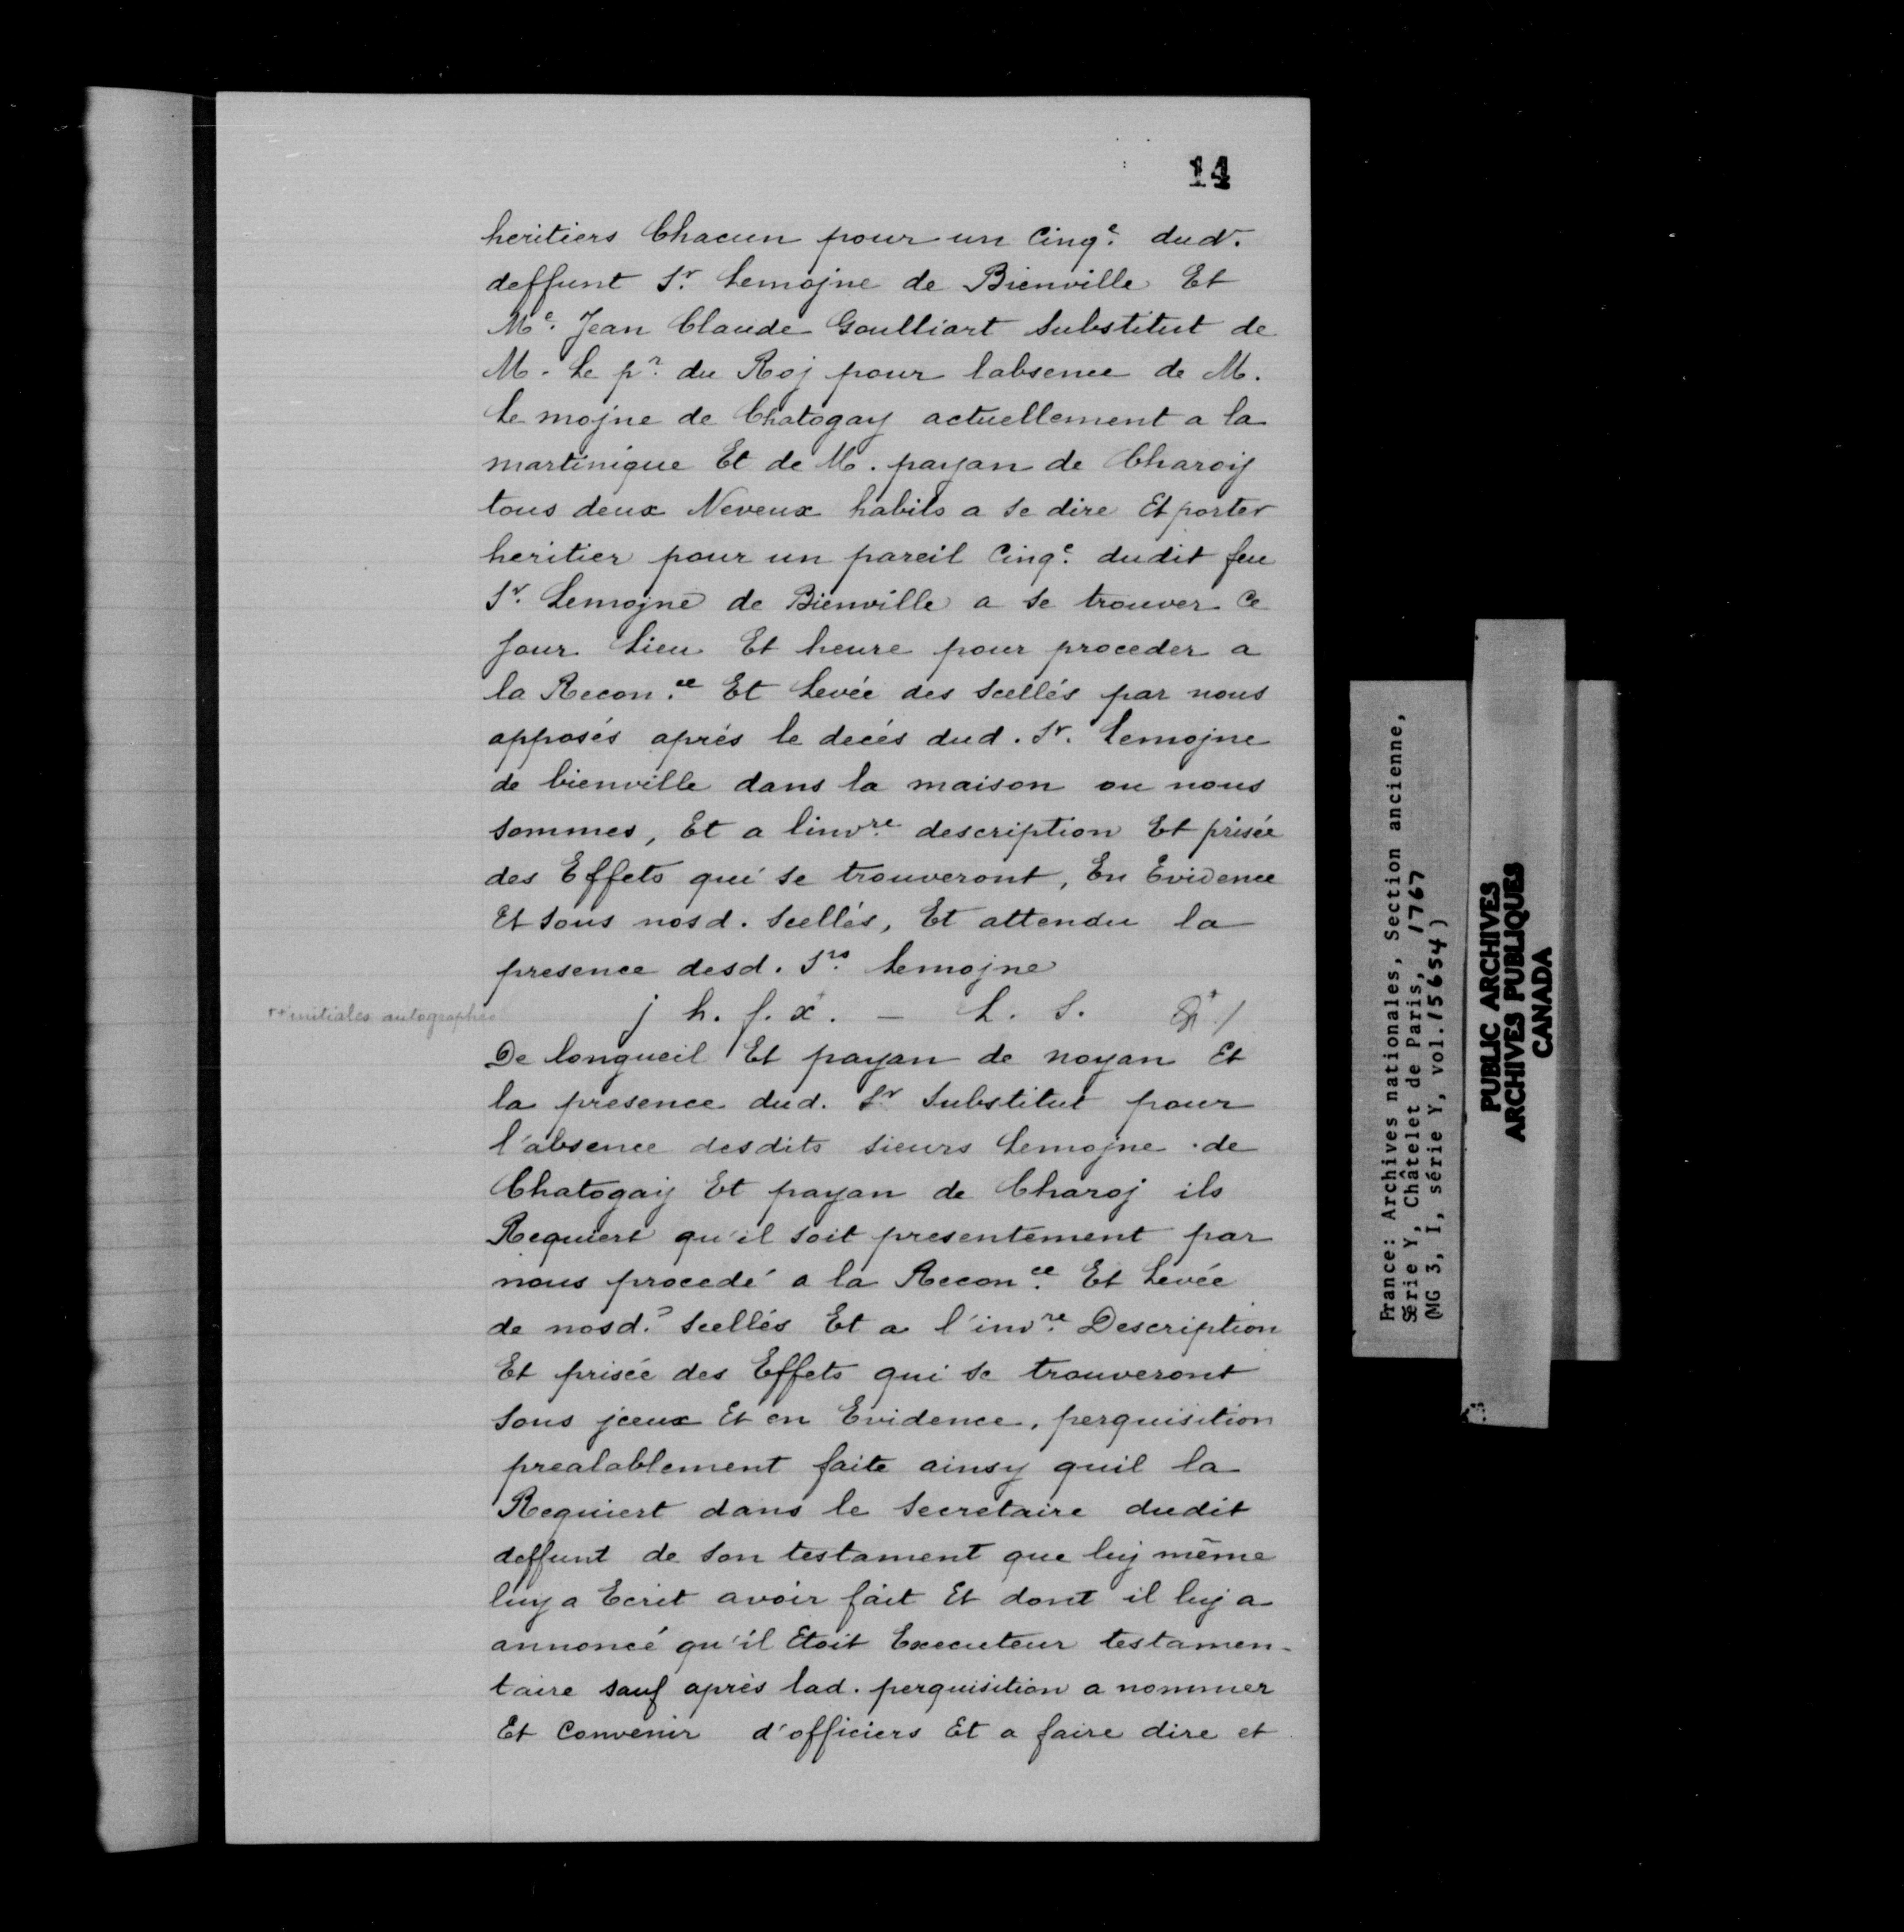 14
heritiers Chacun pour un Cinq.e dud.
deffunt Sr. Lemojne de Bienville Et
Me. Jean Claude Goulliart Substitut de
M. Le pr. du Roj pour labsence de M.
Le mojne de Chatogay actuellement a la
martinique Et de M. payan de Charoij
tous deux Neveux habils a se dire Et porter
heritier pour un pareil Cinq.e dudit feu
Sr. Lemojne de Bienville a se trouver Ce
Jour Lieu Et heure pour proceder a
la Recon.ce Et Levée des Scellés par nous
apposés aprés le decés dud. Sr. Lemojne
de bienville dans la maison ou nous
Sommes, Et a linvre. description Et prisée
des Effets qui se trouveront, En Evidence
Et Sous nosd. Scellés, Et attendu la
presence desd. Srs. Lemojne
++initiales autographes
j h. f. x+. — L. S.
De longueil Et payan de noyan Et
la presence dud. Sr Substitut pour
l'absence desdits sieurs Lemojne de
Chatogaij Et payan de Charoj ils
Requiert qu'il soit presentement par
nous procedé a la Recon.ce Et Levée
de nosd. Scellés Et a l'invre. Description
Et prisée des Effets qui se trouveront
Sous jceux Et en Evidence, perquisition
prealablement faite ainsy quil la
Requiert dans le Secretaire dudit
deffunt de Son testament que luj même
luy a Ecrit avoir fait Et dont il luj a
annoncé qu'il Etoit Executeur testamen-
taire sauf après lad. perquisition a nommer
Et Convenir d'officiers Et a faire dire et
France: Archives nationales, Section ancienne,
Série Y, Châtelet de Paris, 1767
(MG 3, I, série Y, vol.15654)
PUBLIC ARCHIVES
ARCHIVES PUBLIQUES
CANADA